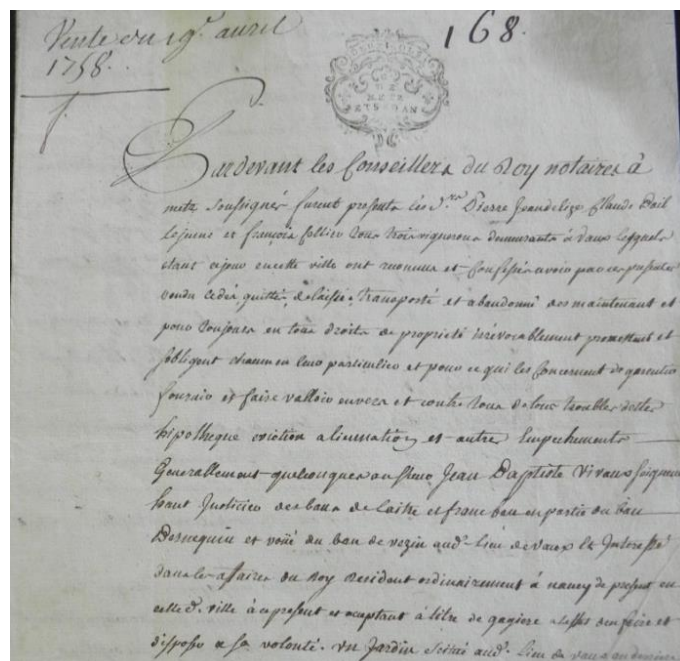 Vente du 19e. avril
1758.
168.
DE
METZ
Pardevant les Conseillers du Roy notaires à
metz soussignés furent presents les Srs. Pierre Jeandelize, Claude
Lejeune et françois tous trois vignerons demeurants à Vaux lesquels
étant cejour en cette ville ont reconnus et Confessés avoir par ces presentes
vendu cedés quittés, delaissés, transporté et abandonné dès maintenant et
pour toujours en tous droits de proprieté irrévocablement promettant et
s'obligent chacun en leur particulier et pour ce qui les Concernent de garentir
fournir et faire valloir envers et contre tous de tous troubles dettes
hipotheque eviction alienation et autres Empechements
Generallement quelconques au Sieur Jean Baptiste Vivaux Seigneur
haut Justicier des bans de et franc ban en partie du ban
et voüé du ban de vezin aud. lieu de vaux Et Interessé
dans les affaires du Roy Resident ordinairement à nancy de present en
cette d. ville à ce present et acceptant à titre de gagiere
disposer à sa volonté. un Jardin scitué aud. lieu de vaux